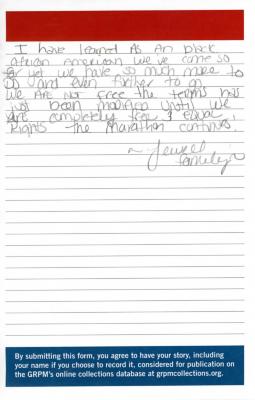 I have learned As An black
African American we've come so
far yet we have so much more to
do and even further to go
We ARE NOT free the terms has
just been modified Until we
are completely free & equal
Rights the Marathon continues.
~ Jewell
family
By submitting this form, you agree to have your story, including
your name if you choose to record it, considered for publication on
the GRPM's online collections database at grpmcollections.org.